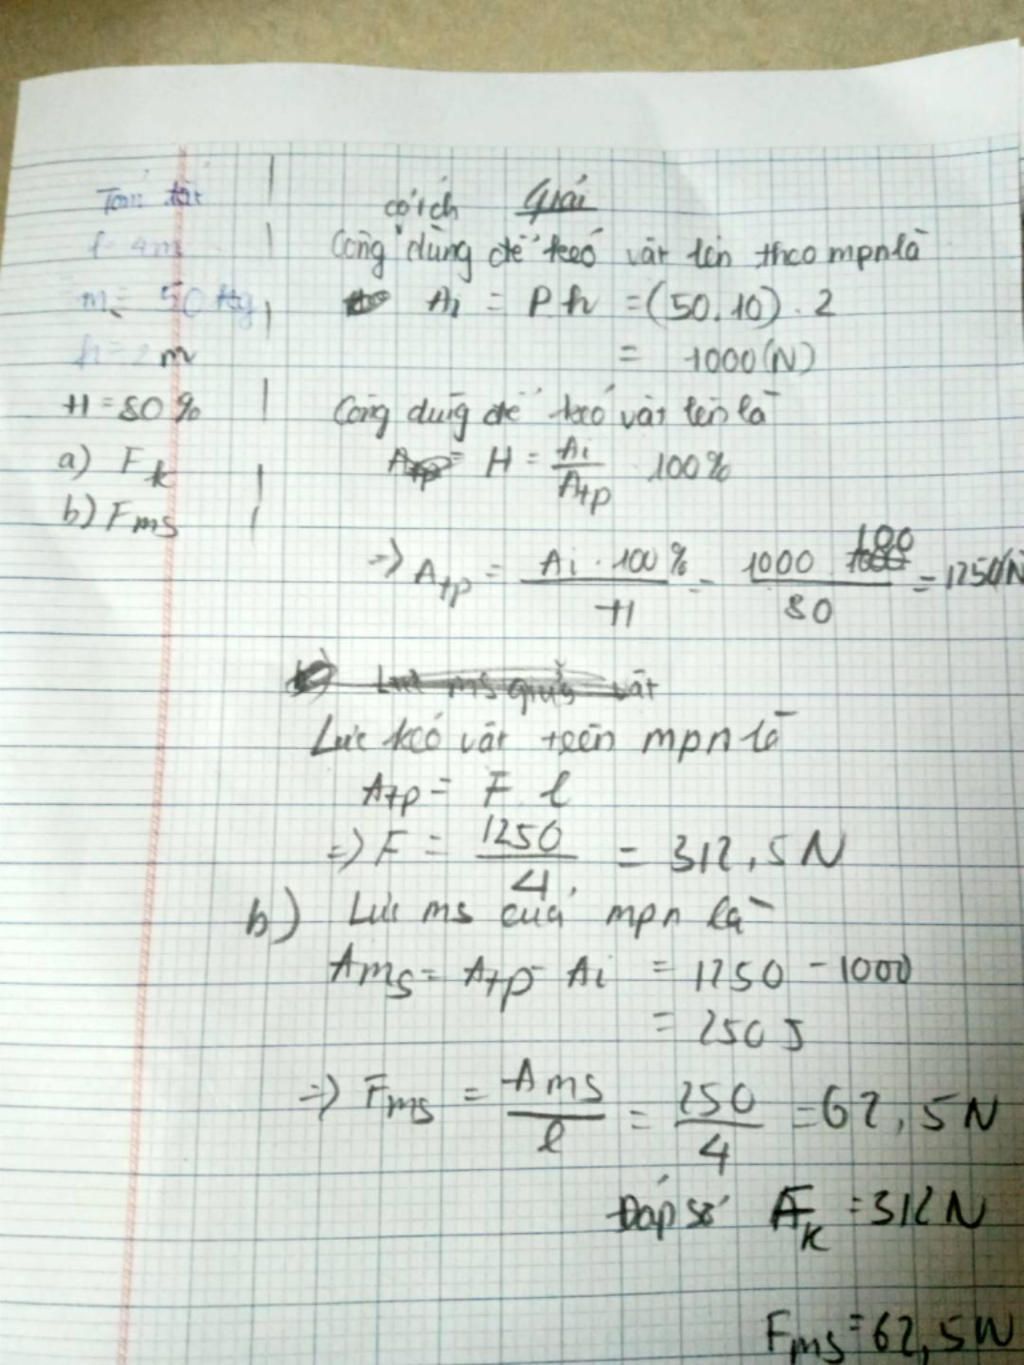 Tóm tắt
l = 4m
m = 50 Kg
h = 2 m
H = 80 %
a) F k
b) Fms
có ích Giải
Công dùng để kéo vật lên theo mpn là
Ai = P.h = (50.10) . 2
= 1000 (N)
Công dùng để kéo vật lên là
Atp = H = Ai / Atp 100%
=> Atp = Ai . 100 % / H = 1000 . 100 / 80 = 1250 (N
Lực ms giữa vật
Lực kéo vật trên mpn là
Atp = F. l
=> F = 1250 / 4 = 312,5 N
b) Lực ms của mpn là
Ams = Atp - Ai = 1250 - 1000
= 250 J
=> Fms = Ams / l = 250 / 4 = 62,5 N
Đáp số Fk = 312 N
Fms = 62,5 N